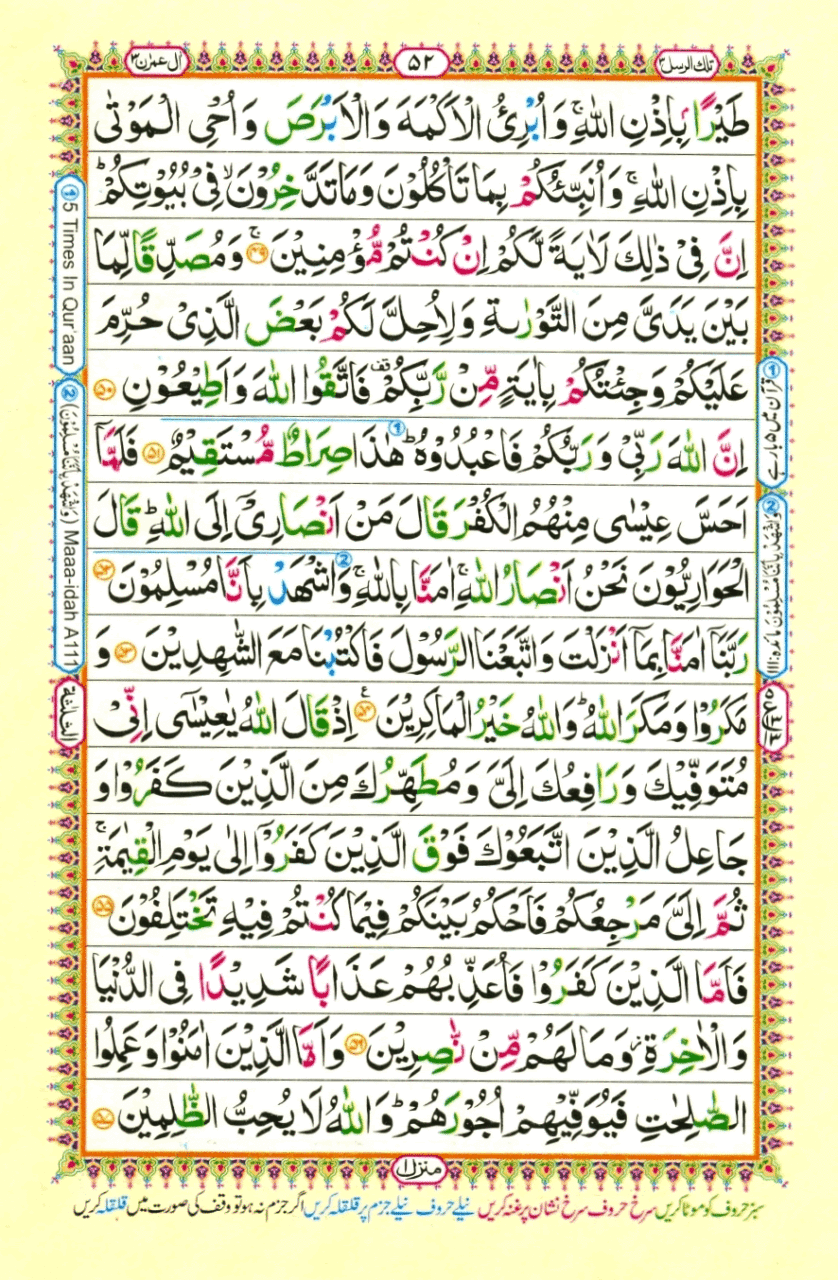 تلك الرسل ۳
۵۲
اٰل عمرٰن ۳
طَيْرًاۢ بِاِذْنِ اللّٰهِ ۚ وَاُبْرِئُ الْاَكْمَهَ وَالْاَبْرَصَ وَاُحْىِ الْمَوْتٰى
بِاِذْنِ اللّٰهِ ۚ وَاُنَبِّئُكُمْ بِمَا تَاْكُلُوْنَ وَمَا تَدَّخِرُوْنَ ۙ فِىْ بُيُوْتِكُمْ ؕ
اِنَّ فِىْ ذٰلِكَ لَاٰيَةً لَّكُمْ اِنْ كُنْتُمْ مُّؤْمِنِيْنَ ۚ ۴۹ وَمُصَدِّقًا لِّمَا
بَيْنَ يَدَىَّ مِنَ التَّوْرٰٮةِ وَلِاُحِلَّ لَكُمْ بَعْضَ الَّذِىْ حُرِّمَ
عَلَيْكُمْ وَجِئْتُكُمْ بِاٰيَةٍ مِّنْ رَّبِّكُمْ قف فَاتَّقُوا اللّٰهَ وَاَطِيْعُوْنِ ۵۰
اِنَّ اللّٰهَ رَبِّىْ وَرَبُّكُمْ فَاعْبُدُوْهُ ؕ هٰذَا صِرَاطٌ مُّسْتَقِيْمٌ ۵۱ فَلَمَّاۤ
اَحَسَّ عِيْسٰى مِنْهُمُ الْكُفْرَ قَالَ مَنْ اَنْصَارِىْۤ اِلَى اللّٰهِ ؕ قَالَ
الْحَوَارِيُّوْنَ نَحْنُ اَنْصَارُ اللّٰهِ ۚ اٰمَنَّا بِاللّٰهِ ۚ وَاشْهَدْ بِاَنَّا مُسْلِمُوْنَ ۵۲
رَبَّنَاۤ اٰمَنَّا بِمَاۤ اَنْزَلْتَ وَاتَّبَعْنَا الرَّسُوْلَ فَاكْتُبْنَا مَعَ الشّٰهِدِيْنَ ۵۳ وَ
مَكَرُوْا وَمَكَرَ اللّٰهُ ؕ وَاللّٰهُ خَيْرُ الْمَاكِرِيْنَ ۵۴ اِذْ قَالَ اللّٰهُ يٰعِيْسٰۤى اِنِّىْ
مُتَوَفِّيْكَ وَرَافِعُكَ اِلَىَّ وَمُطَهِّرُكَ مِنَ الَّذِيْنَ كَفَرُوْا وَ
جَاعِلُ الَّذِيْنَ اتَّبَعُوْكَ فَوْقَ الَّذِيْنَ كَفَرُوْۤا اِلٰى يَوْمِ الْقِيٰمَةِ ۚ
ثُمَّ اِلَىَّ مَرْجِعُكُمْ فَاَحْكُمُ بَيْنَكُمْ فِيْمَا كُنْتُمْ فِيْهِ تَخْتَلِفُوْنَ ۵۵
فَاَمَّا الَّذِيْنَ كَفَرُوْا فَاُعَذِّبُهُمْ عَذَابًا شَدِيْدًا فِى الدُّنْيَا
وَالْاٰخِرَةِ وَمَا لَهُمْ مِّنْ نّٰصِرِيْنَ ۵۶ وَاَمَّا الَّذِيْنَ اٰمَنُوْا وَعَمِلُوا
الصّٰلِحٰتِ فَيُوَفِّيْهِمْ اُجُوْرَهُمْ ؕ وَاللّٰهُ لَا يُحِبُّ الظّٰلِمِيْنَ ۵۷
① 5 Times In Qur'aan
② (وَاشْهَدْ بِاَنَّنَا مُسْلِمُوْنَ) Maaa-idah A111
الثلثة
① قرآن میں ۵ بار ہے
② وَاشْهَدْ بِاَنَّنَا مُسْلِمُوْنَ مائدہ: ۱۱۱
منزل ۱
سبز حروف کو موٹا کریں سرخ حروف سرخ نشان پر غنہ کریں نیلے حروف نیلے جزم پر قلقلہ کریں اگر جزم نہ ہو تو وقف کی صورت میں قلقلہ کریں